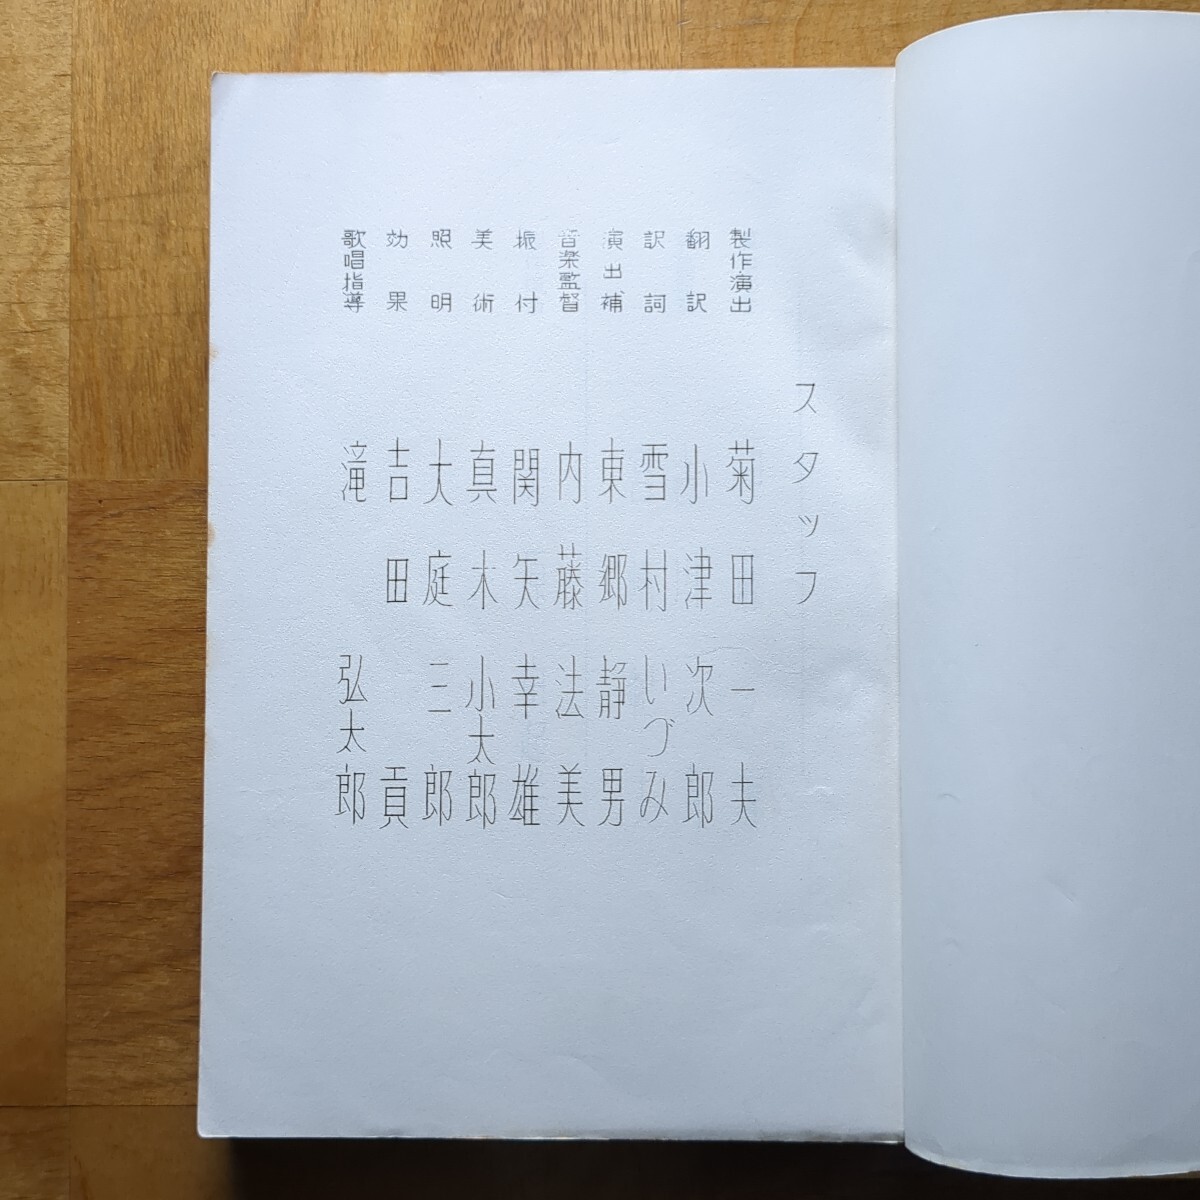 スタッフ
製作演出 菊田一夫
翻訳 小津次郎
訳詞 雪村いづみ
演出補 東郷静男
音楽監督 内藤法美
振付 関矢幸雄
美術 真木小太郎
照明 大庭三郎
効果 吉田貢
歌唱指導 滝弘太郎